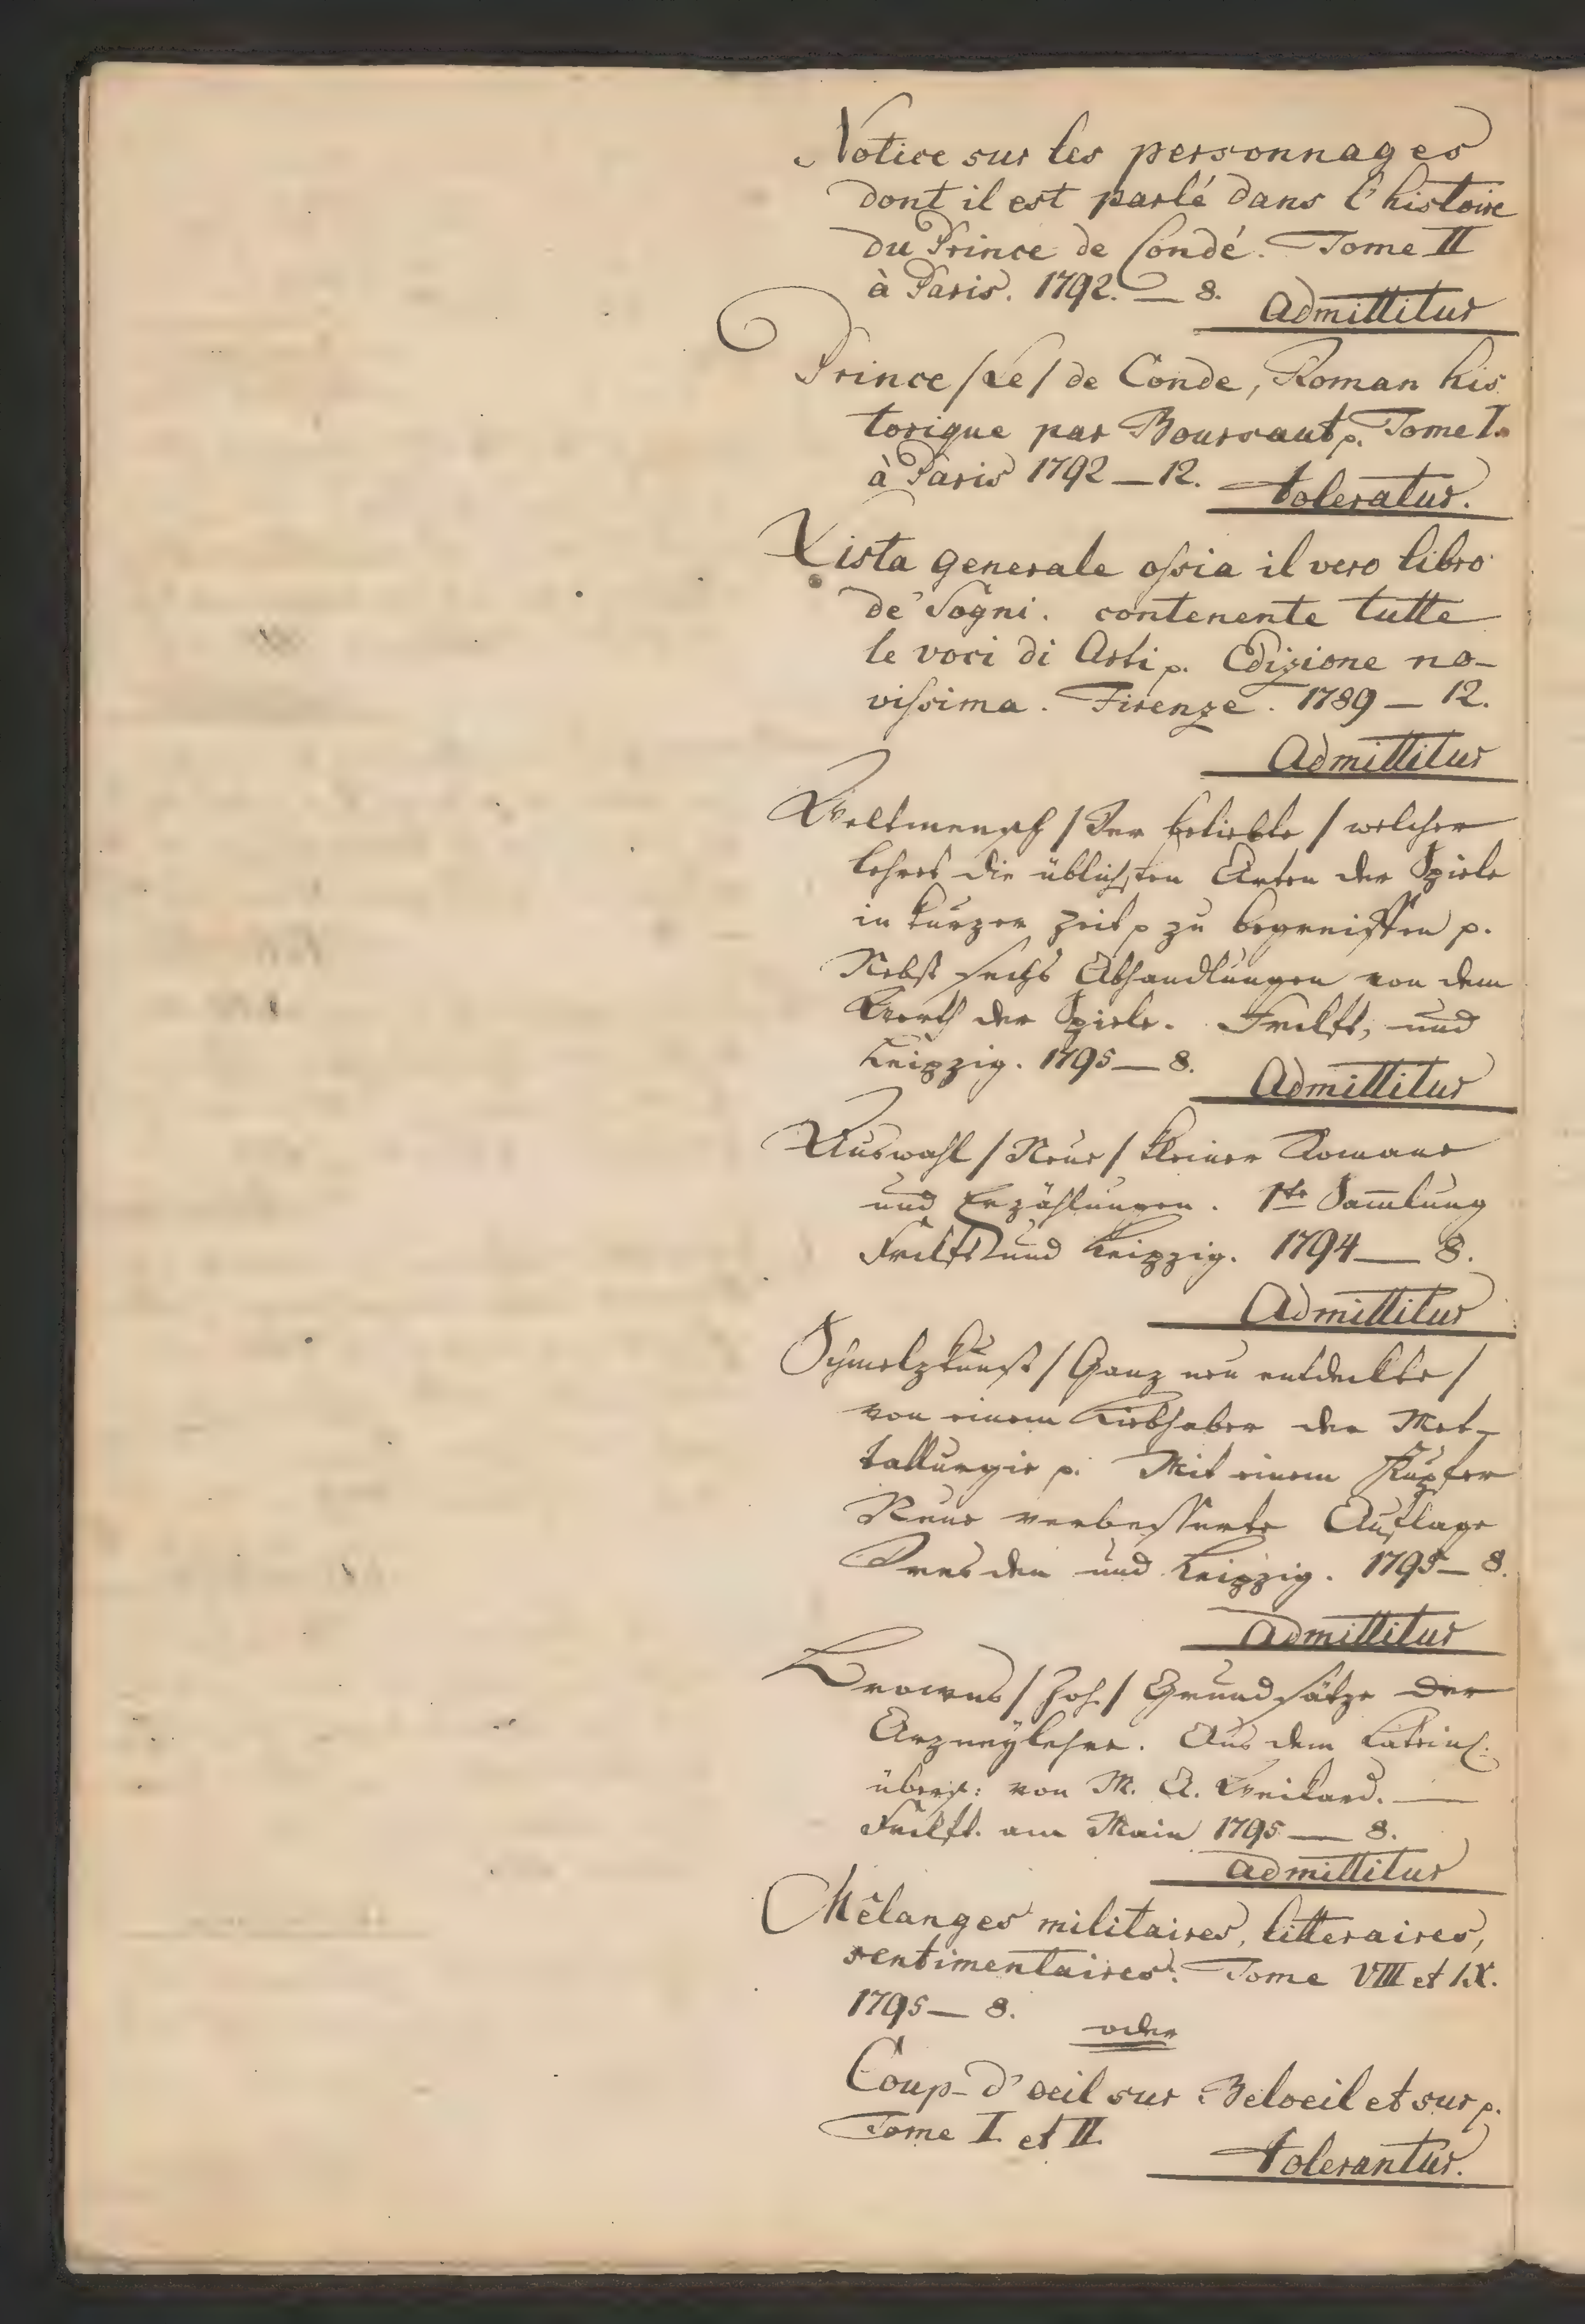 Notice sur les personnages
dont il est parlé dans l'histoire
du Prince de Condé. Tome II
à Paris. 1792. — 8.
Admittitur
Prince /Le/ de Conde, Roman his
torique par Boursaut p. Tome I.
à Paris 1792 — 12.
toleratur.
Lista generale ossia il vero libro
de' Sogni. contenente tutte
le voci di Arti p. Edizione no-
vissima. Firenze. 1789 — 12.
Admittitur
Weltmensch /Der beliebte/ welcher
lehret die üblichsten Arten der Spiele
in kurzer Zeit p zu begreiffen p.
Nebst sechs Abhandlungen von dem
Werth der Spiele. Frckft, und
Leipzig. 1795 — 8.
Admittitur
Auswahl /Neue/ kleiner Romane
und Erzählungen. 1te Sam̅lung
Frckft und Leipzig. 1794 — 8.
Admittitur
Schmelzkunst /Ganz neu entdeckte/
von einem Liebhaber der Met-
tallurgie p. Mit einem Kupfer
Neue verbesserte Auflage
Dresden und Leipzig. 1795 — 8.
Admittitur
Browns /Joh./ Grundsätze der
Arzneÿlehre. Aus dem Lateinl:
übers: von M. A. Weikard. —
Frckft. am Main 1795 — 8.
admittitur
Mêlanges militaires, litteraires,
sentimentaires. Tome VIII et IX.
1795 — 8.
oder
Coup-d'oeil sur Beloeil et sur p.
Tome I. et II.
tolerantur.